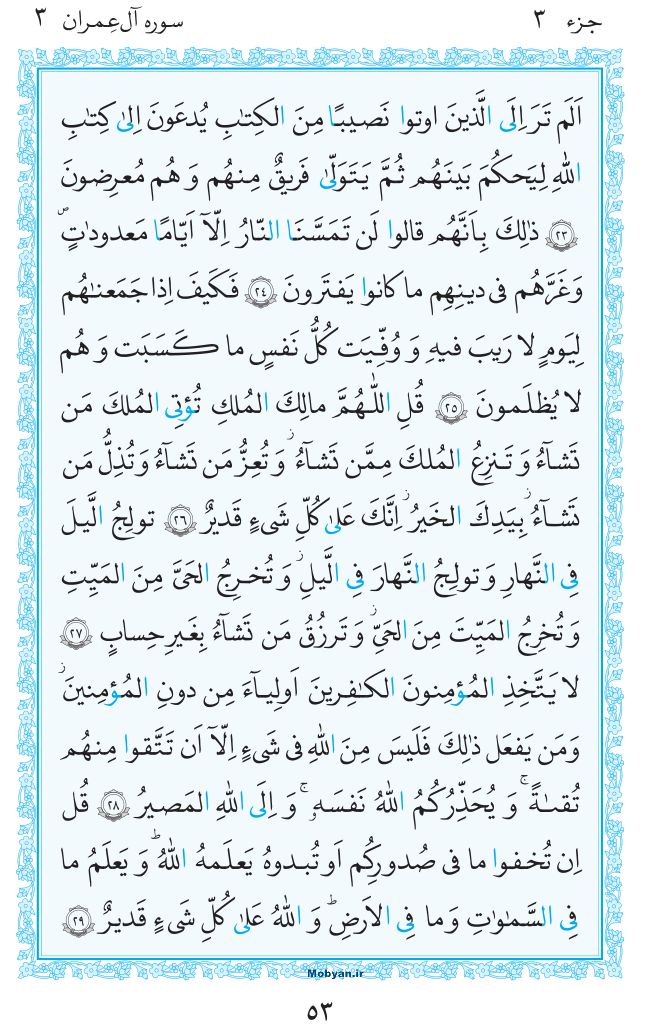 جزء ٣ سوره آل‌عِمران ٣
اَلَم تَرَ اِلَی الَّذينَ اوتوا نَصيبًا مِنَ الكِتٰبِ يُدعَونَ اِلیٰ كِتٰبِ
اللهِ لِيَحكُمَ بَينَهُم ثُمَّ يَتَوَلّیٰ فَريقٌ مِنهُم وَ هُم مُعرِضونَ
﴿٢٣﴾ ذٰلِكَ بِاَنَّهُم قالوا لَن تَمَسَّنَا النّارُ اِلّآ اَيّامًا مَعدوداتٍ ۖ
وَ غَرَّهُم فی دينِهِم ما كانوا يَفتَرونَ ﴿٢٤﴾ فَكَيفَ اِذا جَمَعنٰهُم
لِيَومٍ لا رَيبَ فيهِ وَ وُفِّيَت كُلُّ نَفسٍ ما كَسَبَت وَ هُم
لا يُظلَمونَ ﴿٢٥﴾ قُلِ اللّٰهُمَّ مالِكَ المُلكِ تُؤتِی المُلكَ مَن
تَشآءُ وَ تَنزِعُ المُلكَ مِمَّن تَشآءُ ۡ وَ تُعِزُّ مَن تَشآءُ وَ تُذِلُّ مَن
تَشآءُ ۡ بِيَدِكَ الخَيرُ ۡ اِنَّكَ عَلیٰ كُلِّ شَیءٍ قَديرٌ ﴿٢٦﴾ تولِجُ الَّيلَ
فِی النَّهارِ وَ تولِجُ النَّهارَ فِی الَّيلِ ۡ وَ تُخرِجُ الحَیَّ مِنَ المَيِّتِ
وَ تُخرِجُ المَيِّتَ مِنَ الحَیِّ ۡ وَ تَرزُقُ مَن تَشآءُ بِغَيرِ حِسابٍ ﴿٢٧﴾
لا يَتَّخِذِ المُؤمِنونَ الكٰفِرينَ اَولِيآءَ مِن دونِ المُؤمِنينَ ۡ
وَمَن يَفعَل ذٰلِكَ فَلَيسَ مِنَ اللهِ فی شَیءٍ اِلّآ اَن تَتَّقوا مِنهُم
تُقىٰةً ۚ وَ يُحَذِّرُكُمُ اللهُ نَفسَهو ۚ وَ اِلَی اللهِ المَصيرُ ﴿٢٨﴾ قُل
اِن تُخفوا ما فی صُدورِكُم اَو تُبدوهُ يَعلَمهُ اللهُ ۗ وَ يَعلَمُ ما
فِی السَّمٰوٰتِ وَ ما فِی الاَرضِ ۗ وَ اللهُ عَلیٰ كُلِّ شَیءٍ قَديرٌ ﴿٢٩﴾
Mobyan.ir
٥٣